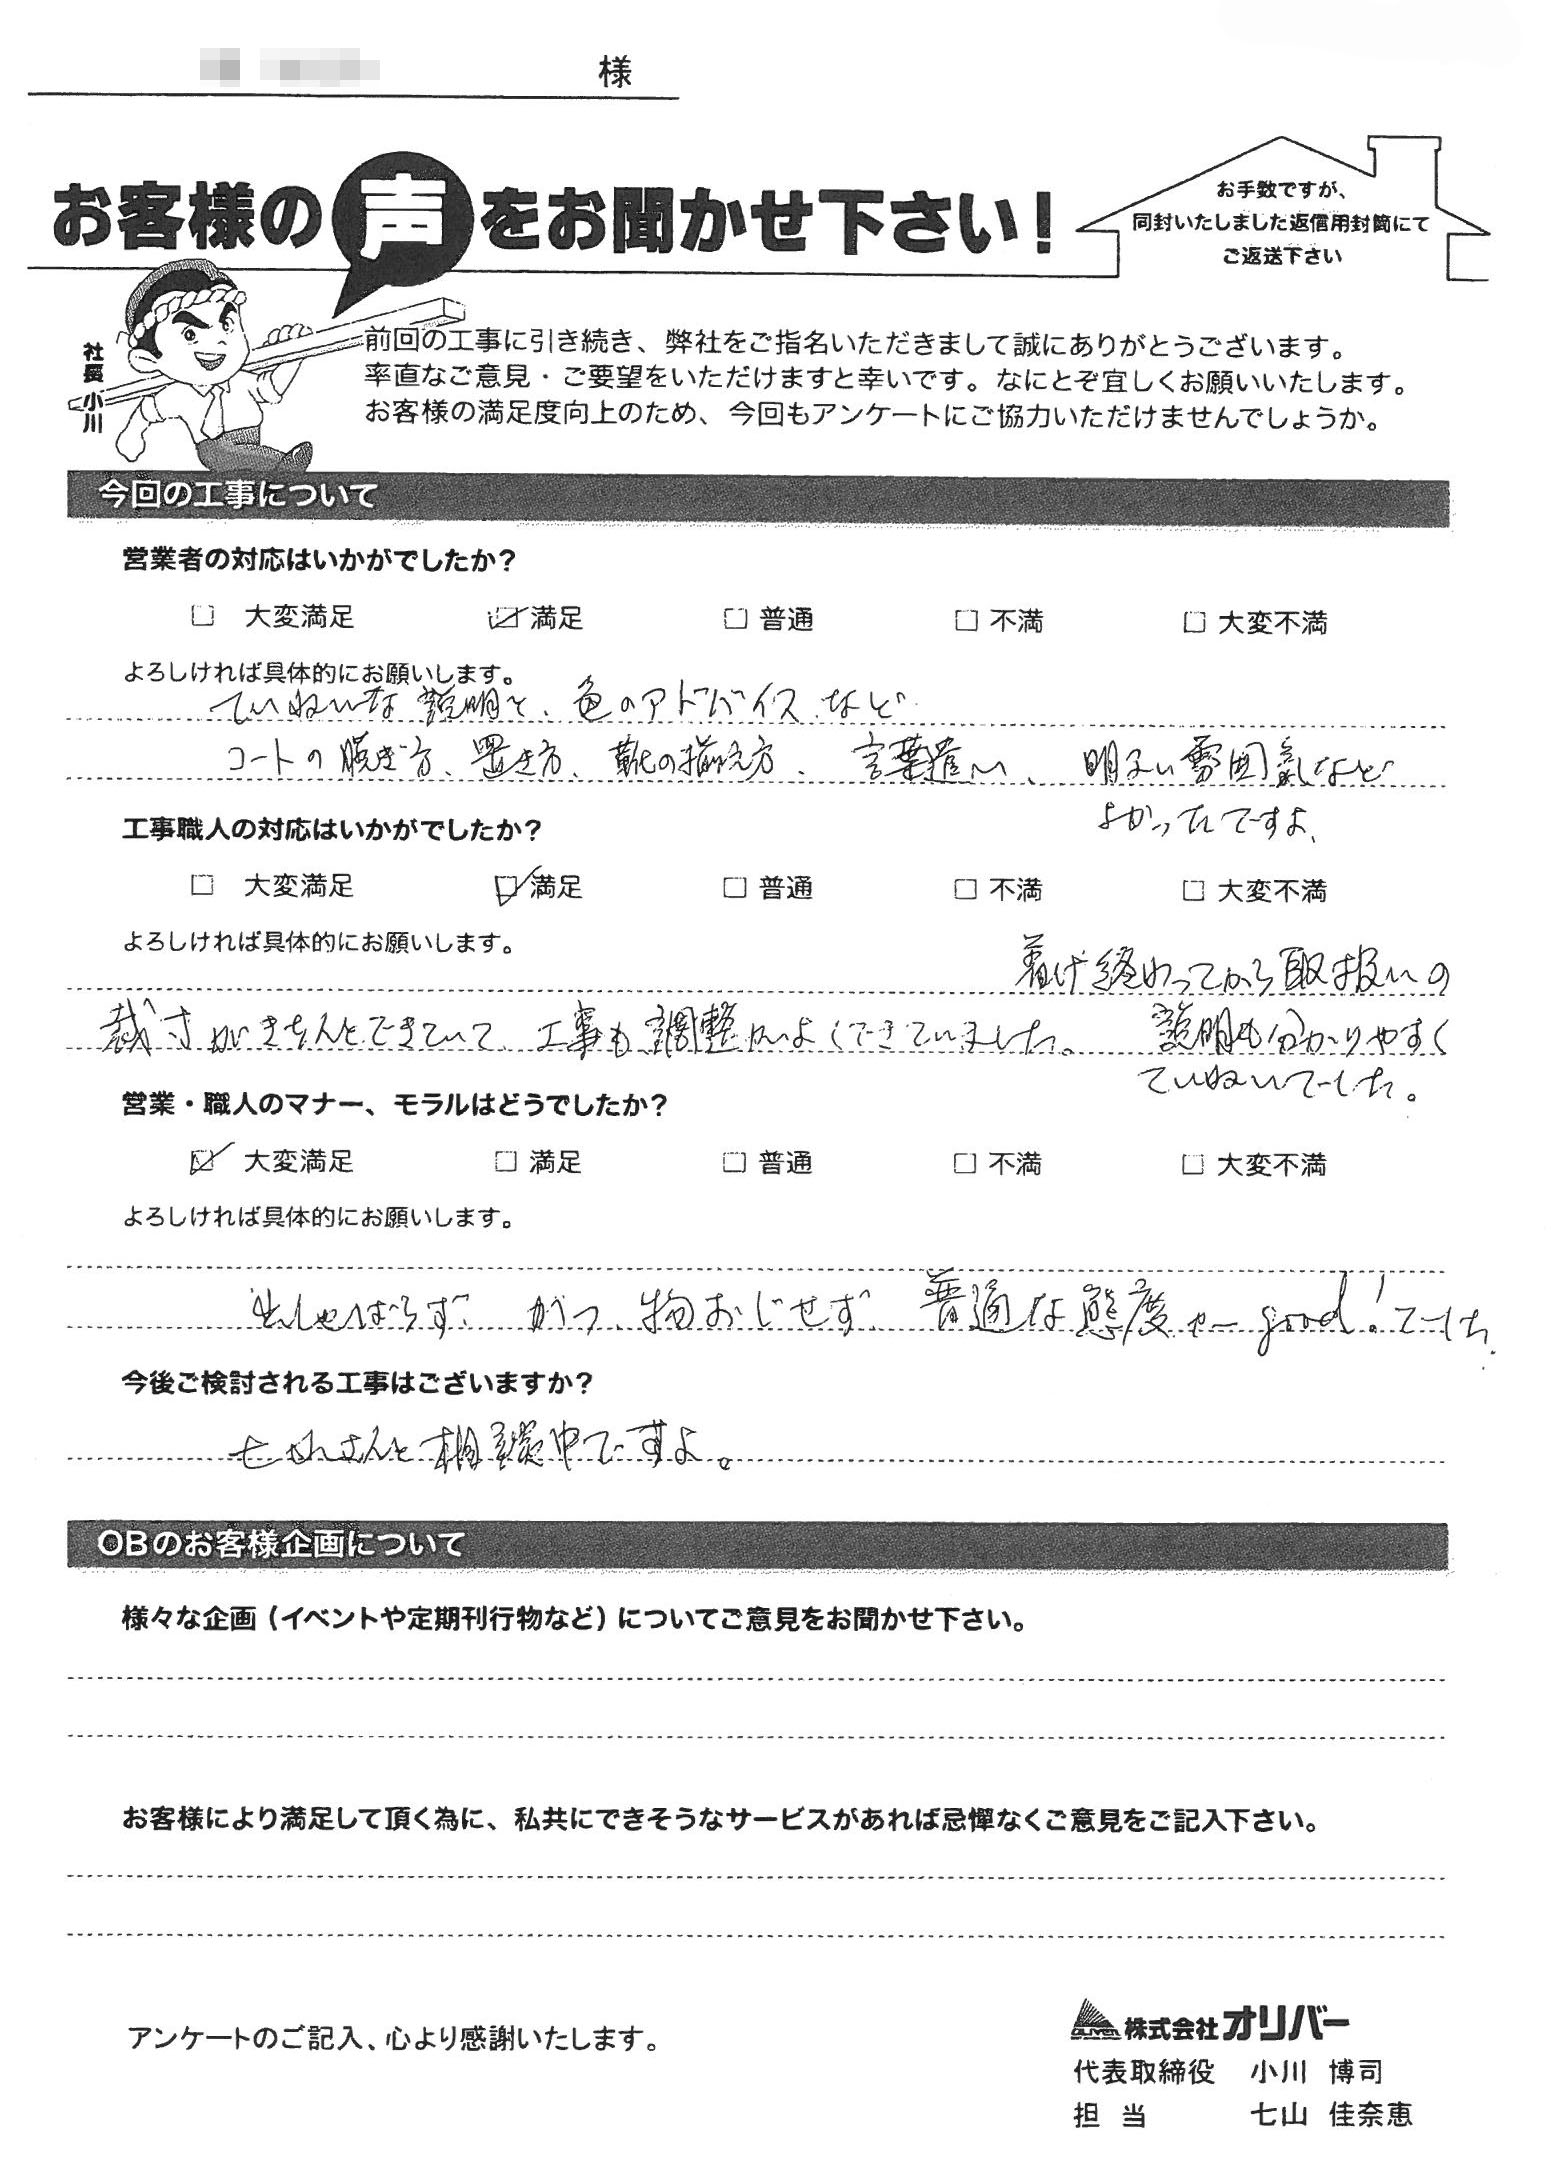 様
お客様の声をお聞かせ下さい！
お手数ですが、
同封いたしました返信用封筒にて
ご返送下さい
社長 小川
前回の工事に引き続き、弊社をご指名いただきまして誠にありがとうございます。
率直なご意見・ご要望をいただけますと幸いです。なにとぞ宜しくお願いいたします。
お客様の満足度向上のため、今回もアンケートにご協力いただけませんでしょうか。
今回の工事について
営業者の対応はいかがでしたか？
□ 大変満足 ☑ 満足 □ 普通 □ 不満 □ 大変不満
よろしければ具体的にお願いします。
ていねいな説明と、色のアドバイスなど
コートの脱ぎ方、置き方、靴の揃え方、言葉遣い、明るい雰囲気など
よかったですよ、
工事職人の対応はいかがでしたか？
□ 大変満足 ☑ 満足 □ 普通 □ 不満 □ 大変不満
よろしければ具体的にお願いします。
裁寸がきちんとできていて、工事も調整がよくできていました。
終わってから取扱いの
説明も分かりやすく
ていねいでした。
営業・職人のマナー、モラルはどうでしたか？
☑ 大変満足 □ 満足 □ 普通 □ 不満 □ 大変不満
よろしければ具体的にお願いします。
出しゃばらず、かつ、物おじせず、普通な態度が good！でした。
今後ご検討される工事はございますか？
七山さんと相談中ですよ。
OBのお客様企画について
様々な企画（イベントや定期刊行物など）についてご意見をお聞かせ下さい。
お客様により満足して頂く為に、私共にできそうなサービスがあれば忌憚なくご意見をご記入下さい。
アンケートのご記入、心より感謝いたします。
株式会社オリバー
代表取締役 小川 博司
担当 七山 佳奈恵